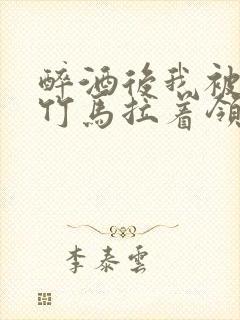 醉酒後我被
竹馬拉着領
李泰雲